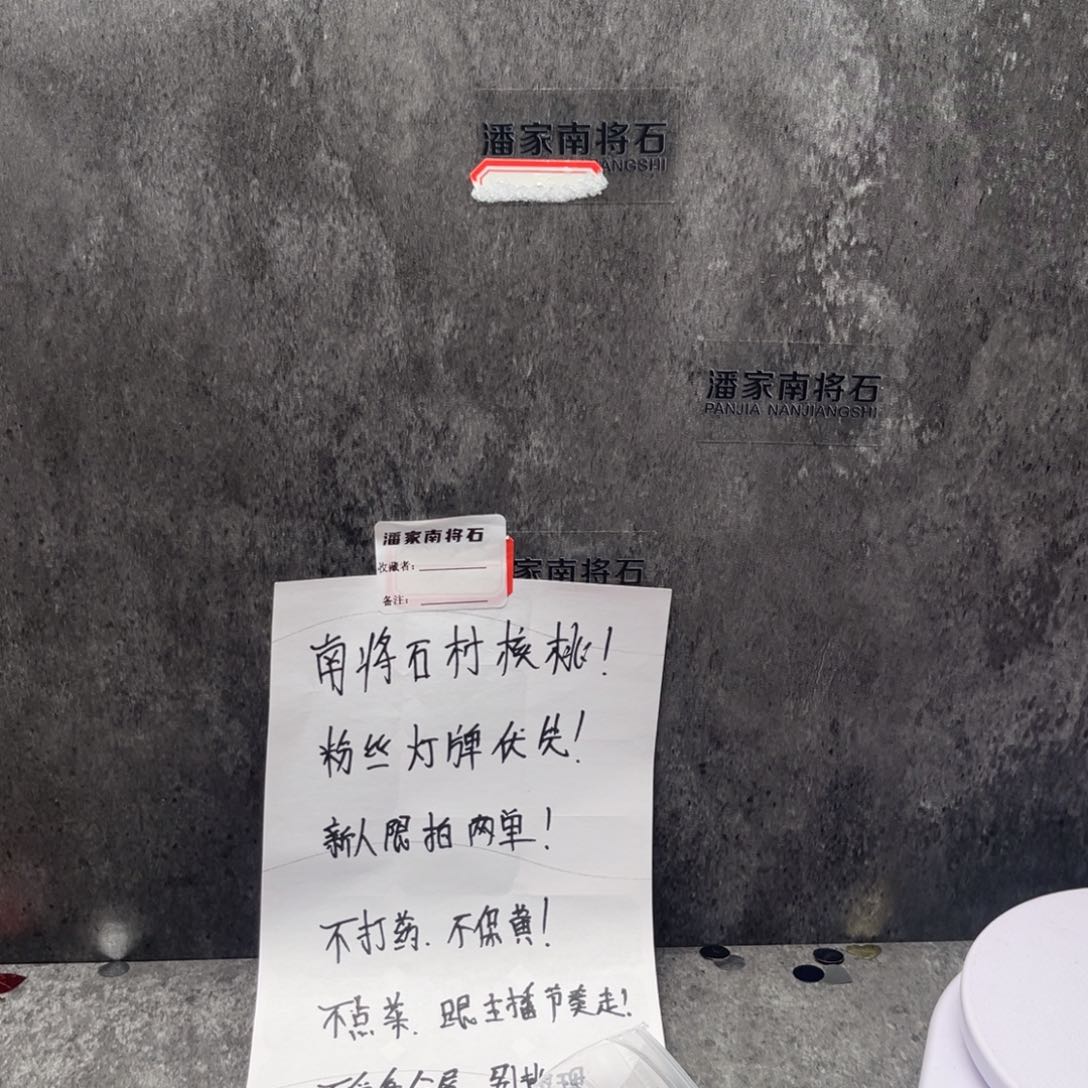 潘家南将石
ANGSHI
潘家南将石
PANJIA NANJIANGSHI
家南将石
潘家南将石
收藏者：
备注：
南将石村核桃！
粉丝灯牌优先！
新人限拍两单！
不打药.不保黄！
不点菜.跟主播节奏走！